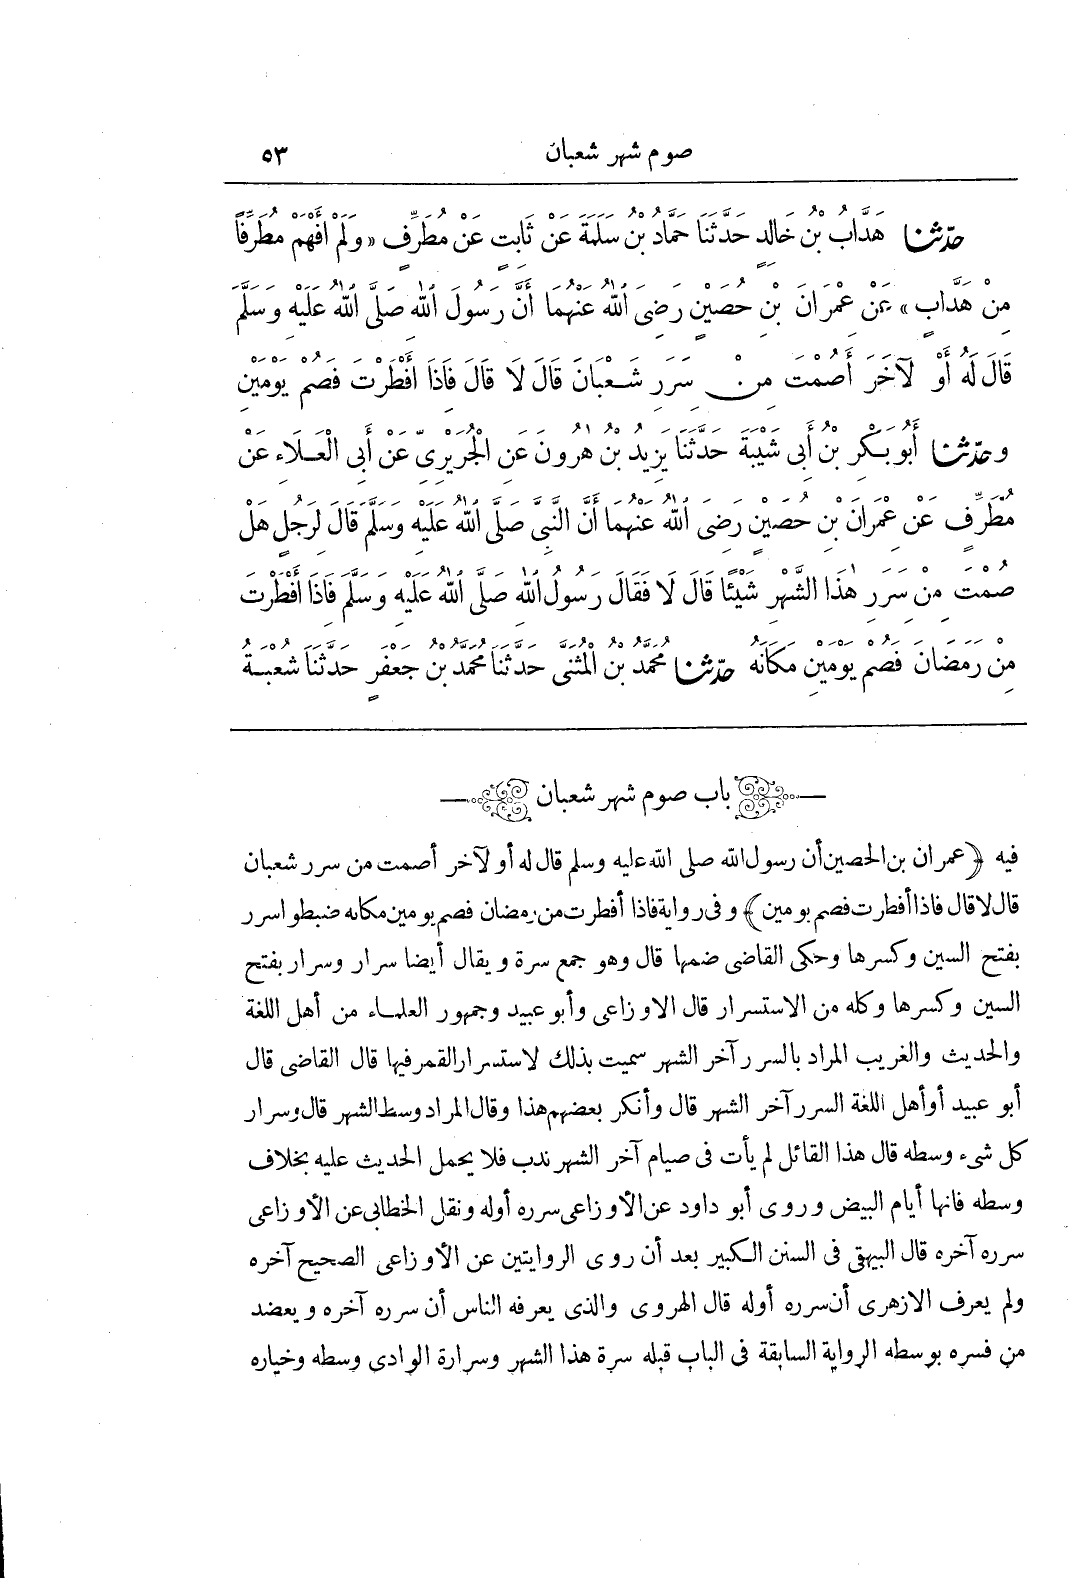 صوم شهر شعبان ٥٣
حدّثنا هَدَّابُ بْنُ خَالِدٍ حَدَّثَنَا حَمَّادُ بْنُ سَلَمَةَ عَنْ ثَابِتٍ عَنْ مُطَرِّفٍ «وَلَمْ أَفْهَمْ مُطَرِّفًا
مِنْ هَدَّابٍ» عَنْ عِمْرَانَ بْنِ حُصَيْنٍ رَضِىَ اللهُ عَنْهُمَا أَنَّ رَسُولَ اللهِ صَلَّى اللهُ عَلَيْهِ وَسَلَّمَ
قَالَ لَهُ أَوْ لِآخَرَ أَصُمْتَ مِنْ سَرَرِ شَعْبَانَ قَالَ لَا قَالَ فَاذَا أَفْطَرْتَ فَصُمْ يَوْمَيْنِ
وحدّثنا أَبُو بَكْرِ بْنُ أَبِى شَيْبَةَ حَدَّثَنَا يَزِيدُ بْنُ هٰرُونَ عَنِ الْجُرَيْرِىِّ عَنْ أَبِى الْعَلَاءِ عَنْ
مُطَرِّفٍ عَنْ عِمْرَانَ بْنِ حُصَيْنٍ رَضِىَ اللهُ عَنْهُمَا أَنَّ النَّبِىَّ صَلَّى اللهُ عَلَيْهِ وَسَلَّمَ قَالَ لِرَجُلٍ هَلْ
صُمْتَ مِنْ سَرَرِ هٰذَا الشَّهْرِ شَيْئًا قَالَ لَا فَقَالَ رَسُولُ اللهِ صَلَّى اللهُ عَلَيْهِ وَسَلَّمَ فَاذَا أَفْطَرْتَ
مِنْ رَمَضَانَ فَصُمْ يَوْمَيْنِ مَكَانَهُ حدّثنا مُحَمَّدُ بْنُ الْمُثَنَّى حَدَّثَنَا مُحَمَّدُ بْنُ جَعْفَرٍ حَدَّثَنَا شُعْبَةُ
باب صوم شهر شعبان
فيه ﴿عمران بن الحصين أن رسول الله صلى الله عليه وسلم قال له أو لآخر أصمت من سرر شعبان
قال لا قال فاذا أفطرت فصم يومين﴾ وفى رواية فاذا أفطرت من رمضان فصم يومين مكانه ضبطوا سرر
بفتح السين وكسرها وحكى القاضى ضمها قال وهو جمع سرة ويقال أيضا سرار وسرار بفتح
السين وكسرها وكله من الاستسرار قال الاوزاعى وأبو عبيد وجمهور العلماء من أهل اللغة
والحديث والغريب المراد بالسرر آخر الشهر سميت بذلك لاستسرار القمر فيها قال القاضى قال
أبو عبيد أو أهل اللغة السرر آخر الشهر قال وأنكر بعضهم هذا وقال المراد وسط الشهر قال وسرار
كل شىء وسطه قال هذا القائل لم يأت فى صيام آخر الشهر ندب فلا يحمل الحديث عليه بخلاف
وسطه فانها أيام البيض وروى أبو داود عن الأوزاعى سرره أوله ونقل الخطابى عن الأوزاعى
سرره آخره قال البيهقى فى السنن الكبير بعد أن روى الروايتين عن الأوزاعى الصحيح آخره
ولم يعرف الازهرى أن سرره أوله قال الهروى والذى يعرفه الناس أن سرره آخره ويعضد
من فسره بوسطه الرواية السابقة فى الباب قبله سرة هذا الشهر وسرارة الوادى وسطه وخياره